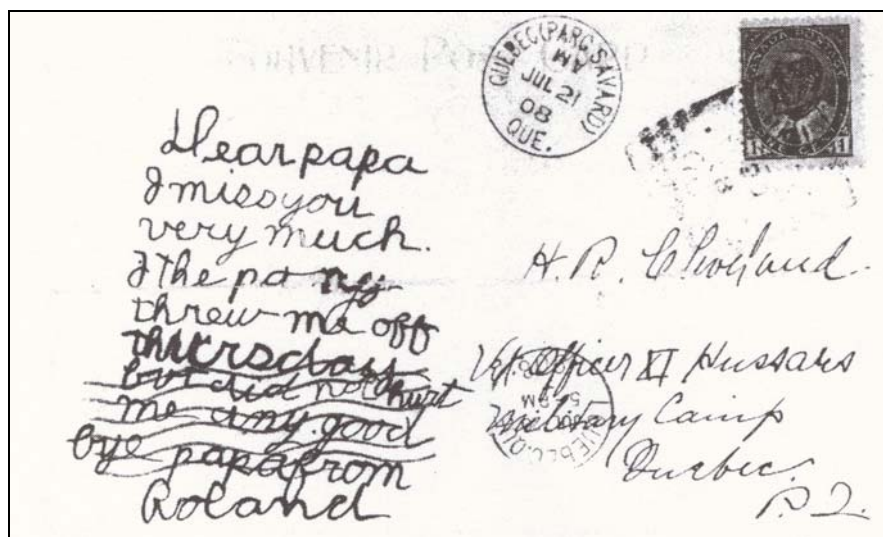 SOUVENIR POST CARD
QUEBEC (PARC SAVARD)
AM
JUL 21
08
QUE.
CANADA POSTAGE
1 ONE CENT 1
Dear papa
I miss you
very much.
I the pony
threw me off
thursday
but did not hurt
me any. good
bye papa from
Roland
H. R. Cleveland.
Vet. Officer XI Hussars
Military Camp
Quebec.
P. Q.
QUEBEC, QUE
PM
5